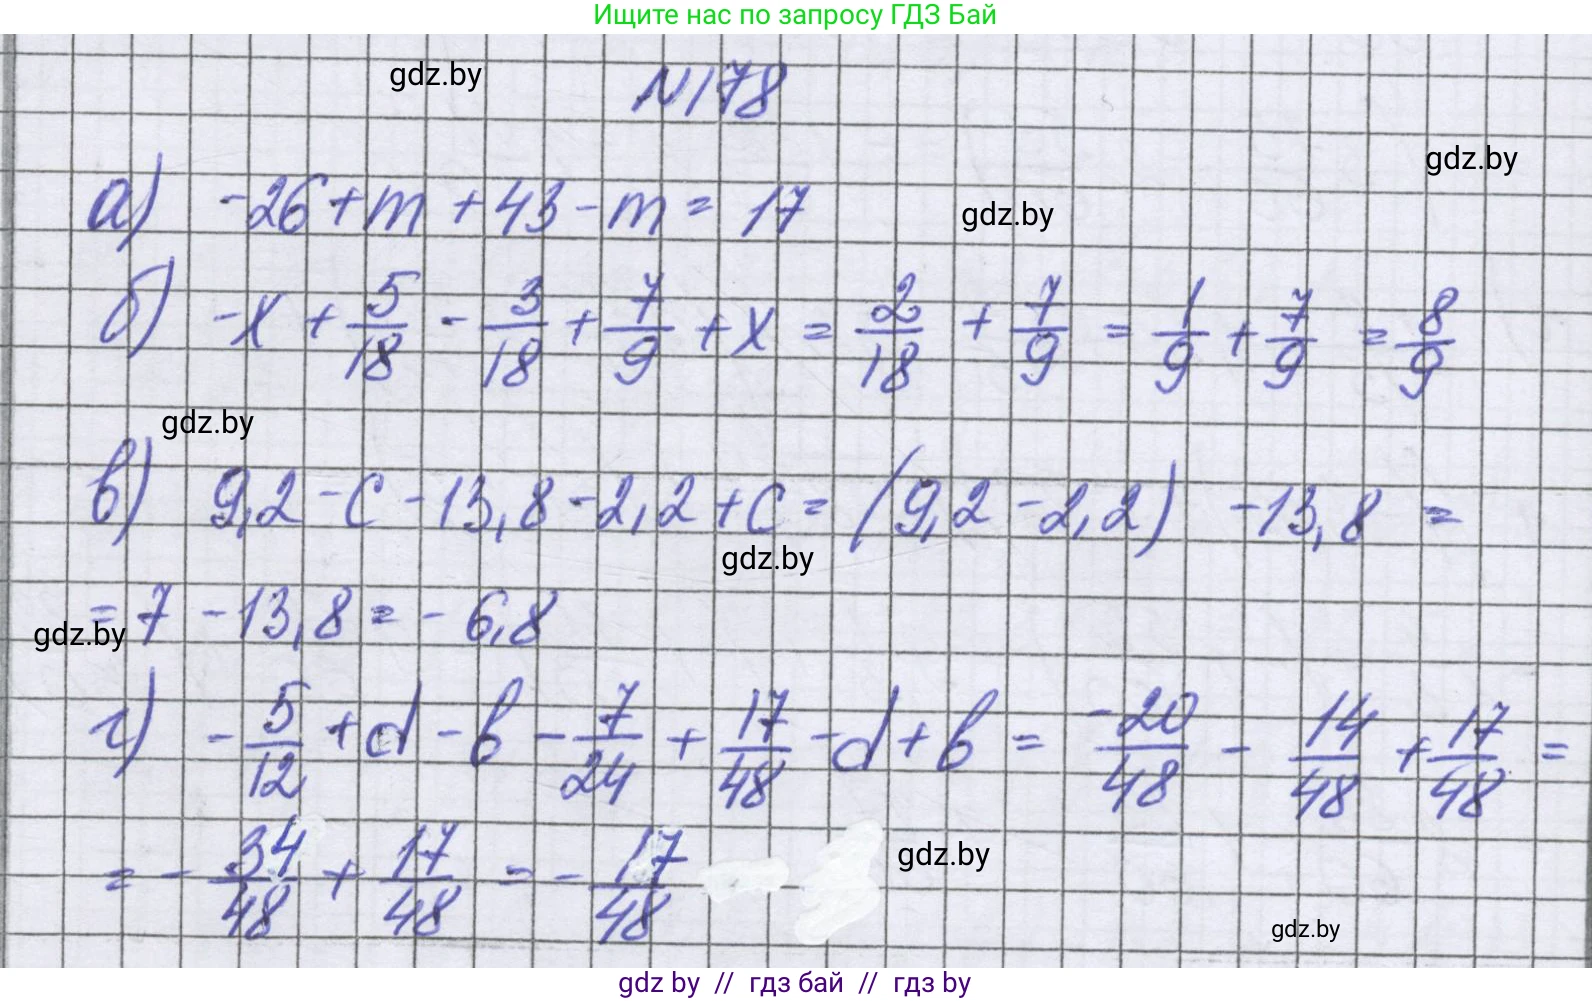 Ищите нас по запросу ГДЗ Бай
gdz.by
N178
gdz.by
а) -26+m+43-m=17
gdz.by
б) -x+5/18-3/18+7/9+x=2/18+7/9=1/9+7/9=8/9
gdz.by
в) 9,2-c-13,8-2,2+c=(9,2-2,2)-13,8=
gdz.by
=7-13,8=-6,8
gdz.by
г) -5/12+d-b-7/24+17/48-d+b=-20/48-14/48+17/48=
=-34/48+17/48=-17/48
gdz.by
gdz.by
gdz by // гдз бай // гдз by